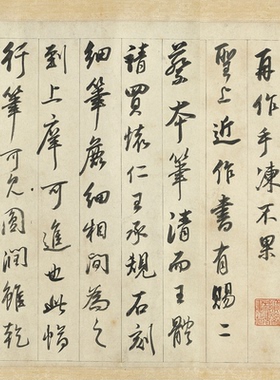 再作手凍不果
聖上近作書有賜二
蔡本筆清而王體
請買懷仁王承規石刻
細筆麄細相間為之
到上庠可進也此惜
行筆可免圓潤雖乾